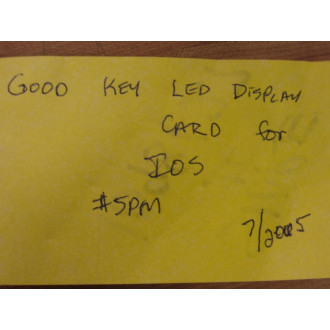 GOOD KEY LED DISPLAY
CARD for
IOS
#5PM
7/2005